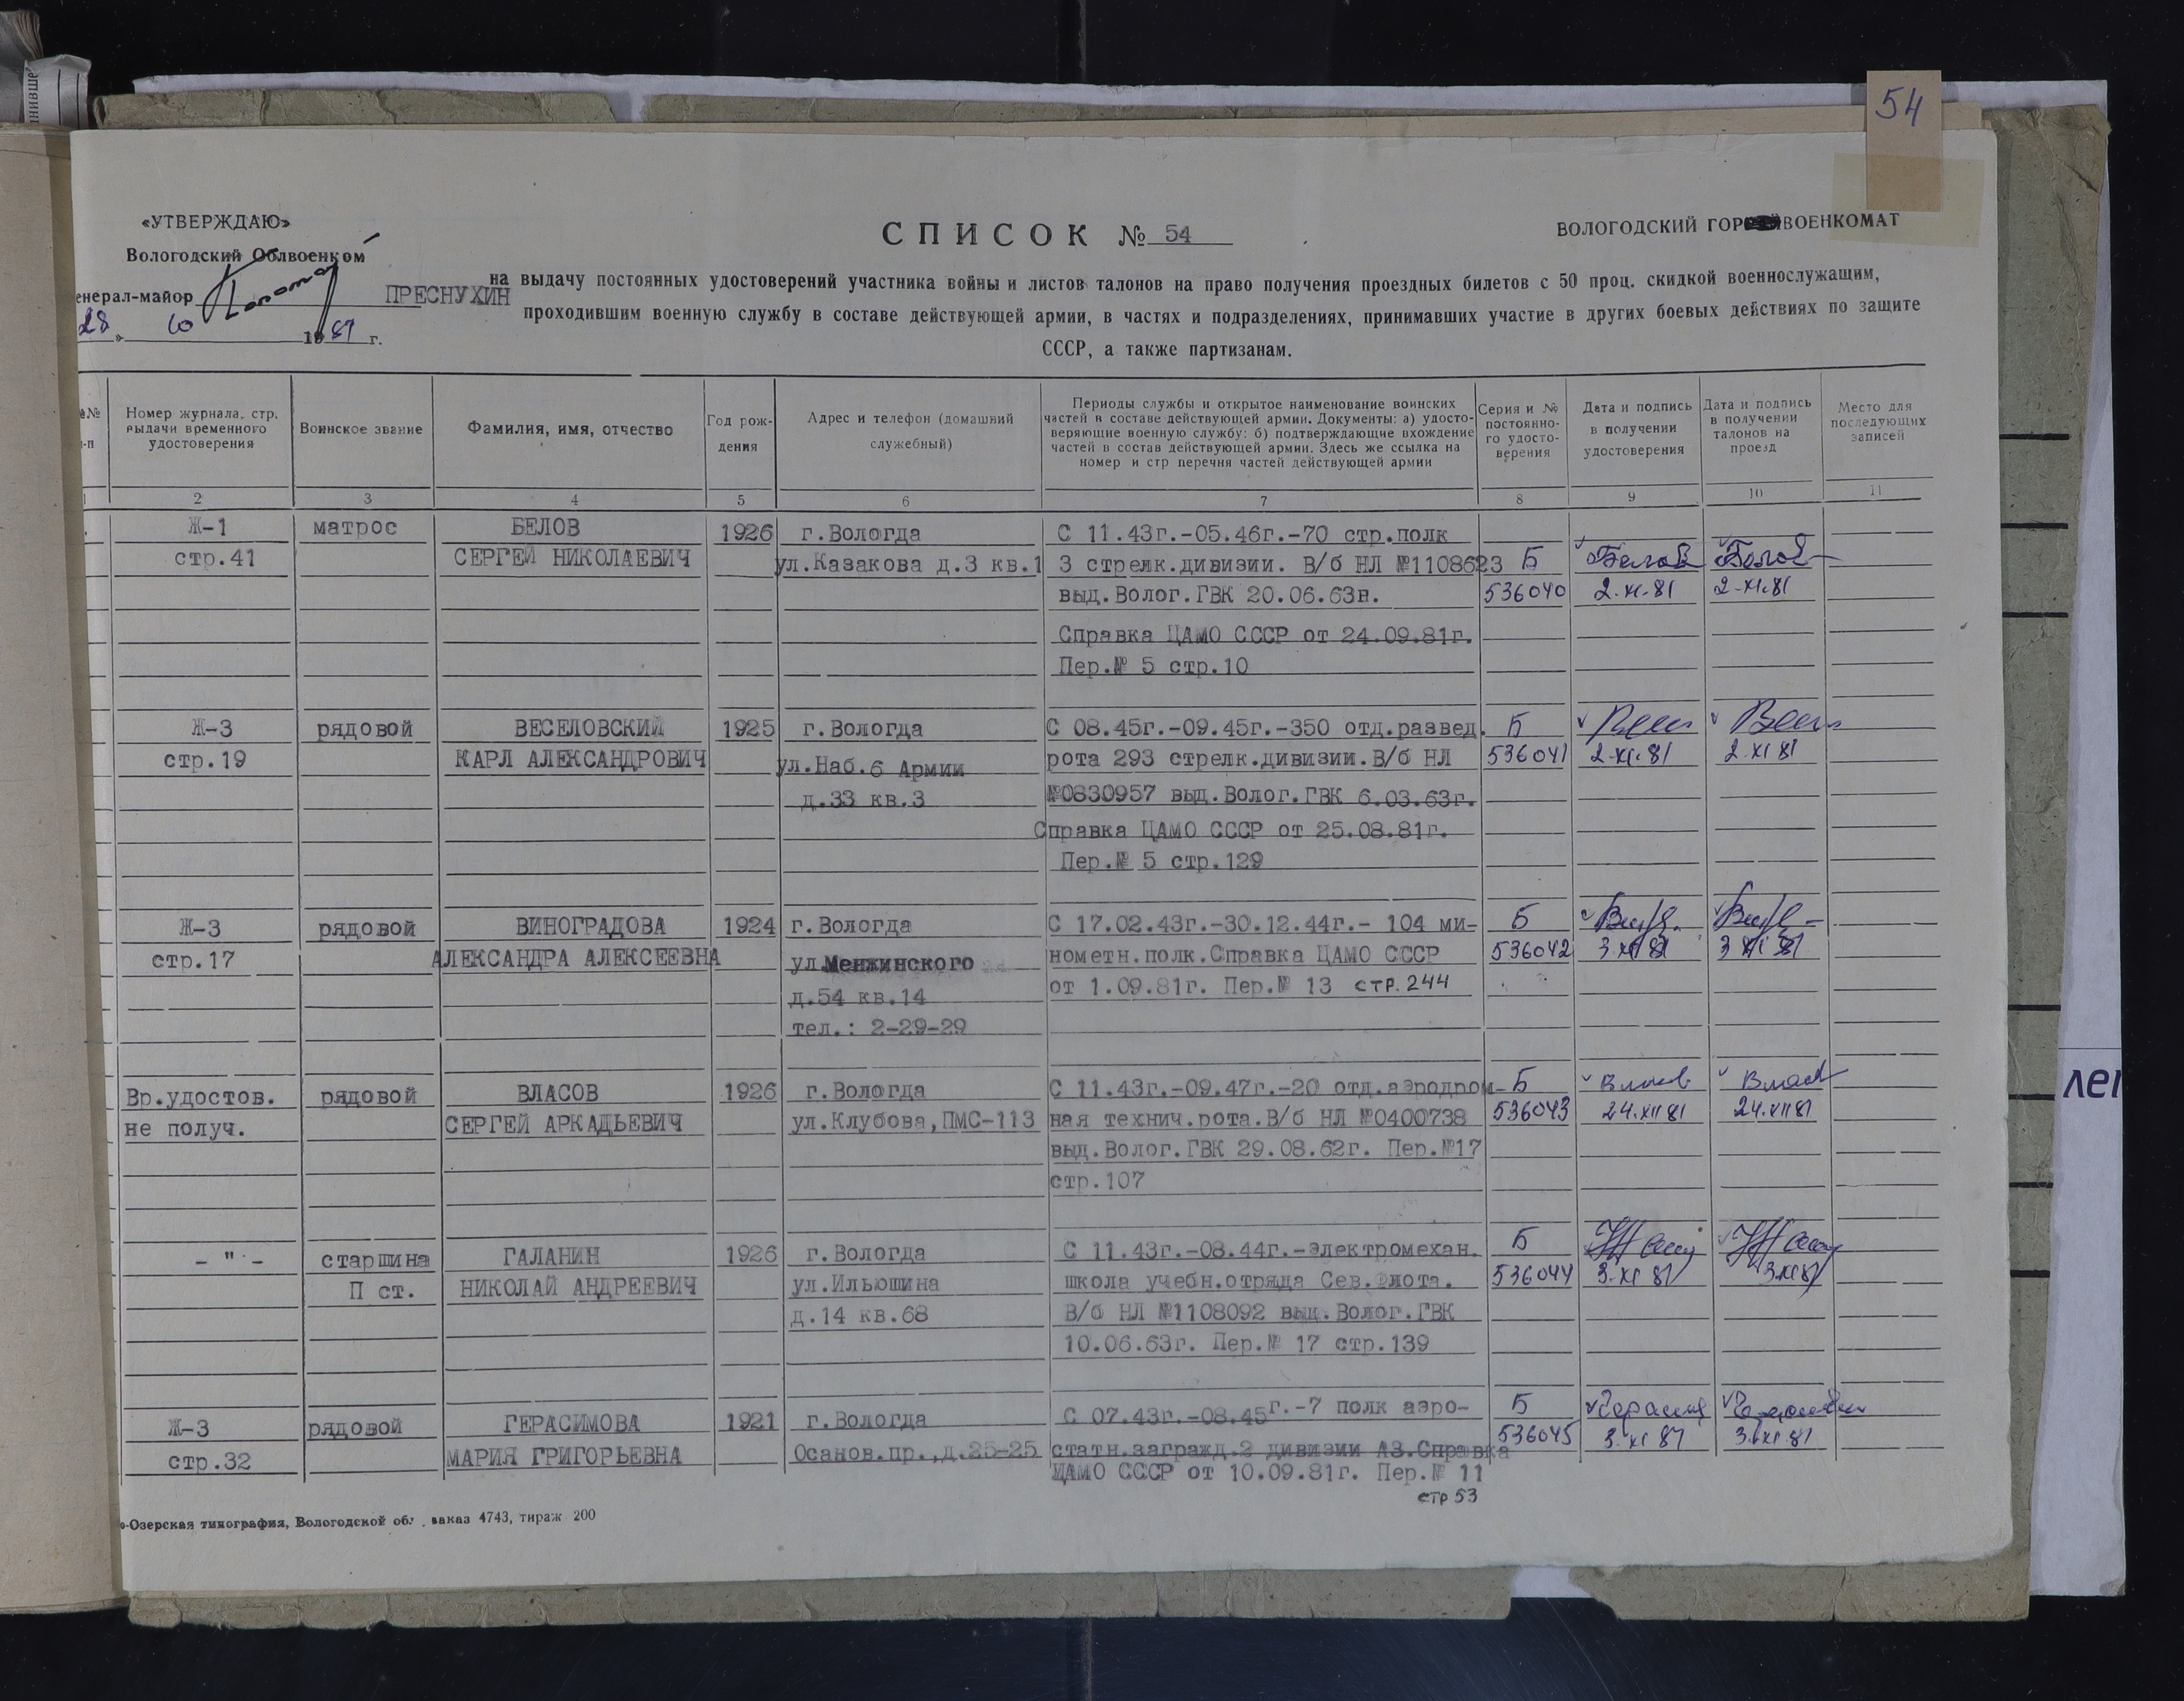 54
«УТВЕРЖДАЮ»
Вологодский Облвоенком
енерал-майор ПРЕСНУХИН
28 » 10 1981 г.
СПИСОК № 54
ВОЛОГОДСКИЙ ГОР ВОЕНКОМАТ
на выдачу постоянных удостоверений участника войны и листов талонов на право получения проездных билетов с 50 проц. скидкой военнослужащим,
проходившим военную службу в составе действующей армии, в частях и подразделениях, принимавших участие в других боевых действиях по защите
СССР, а также партизанам.
№
п-п
Номер журнала, стр.
выдачи временного
удостоверения
Воинское звание
Фамилия, имя, отчество
Год рож-
дения
Адрес и телефон (домашний
служебный)
Периоды службы и открытое наименование воинских
частей в составе действующей армии. Документы: а) удосто-
веряющие военную службу; б) подтверждающие вхождение
частей в состав действующей армии. Здесь же ссылка на
номер и стр перечня частей действующей армии
Серия и №
постоянно-
го удосто-
верения
Дата и подпись
в получении
удостоверения
Дата и подпись
в получении
талонов на
проезд
Место для
последующих
записей
1 2 3 4 5 6 7 8 9 10 11
Ж-1 матрос БЕЛОВ 1926 г.Вологда С 11.43г.-05.46г.-70 стр.полк
стр.41 СЕРГЕЙ НИКОЛАЕВИЧ ул.Казакова д.3 кв.1 3 стрелк.дивизии. В/б НЛ №1108623 Б Белов Белов
выд.Волог.ГВК 20.06.63н. 536040 2.XI.81 2.XI.81
Справка ЦАМО СССР от 24.09.81г.
Пер.№ 5 стр.10
Ж-3 рядовой ВЕСЕЛОВСКИЙ 1925 г.Вологда С 08.45г.-09.45г.-350 отд.развед. Б
стр.19 КАРЛ АЛЕКСАНДРОВИЧ ул.Наб.6 Армии рота 293 стрелк.дивизии.В/б НЛ 536041 2.XI.81 2.XI 81
д.33 кв.3 №0830957 выд.Волог.ГВК 6.03.63г.
Справка ЦАМО СССР от 25.08.81г.
Пер.№ 5 стр.129
Ж-3 рядовой ВИНОГРАДОВА 1924 г.Вологда С 17.02.43г.-30.12.44г.- 104 ми- Б
стр.17 АЛЕКСАНДРА АЛЕКСЕЕВНА ул.Менжинского нометн.полк.Справка ЦАМО СССР 536042 3 XI 81 3 XI 81
д.54 кв.14 от 1.09.81г. Пер.№ 13 стр.244
тел.: 2-29-29
Вр.удостов. рядовой ВЛАСОВ 1926 г.Вологда С 11.43г.-09.47г.-20 отд.аэродром- Б
не получ. СЕРГЕЙ АРКАДЬЕВИЧ ул.Клубова,ПМС-113 ная технич.рота.В/б НЛ №0400738 536043 24.XII 81 24.XII 81
выд.Волог.ГВК 29.08.62г. Пер.№17
стр.107
- " - старшина ГАЛАНИН 1926 г.Вологда С 11.43г.-08.44г.-Электромехан. Б
П ст. НИКОЛАЙ АНДРЕЕВИЧ ул.Ильюшина школа учебн.отряда Сев.Флота. 536044 3.XI 81 3.XI 81
д.14 кв.68 В/б НЛ №1108092 выд.Волог.ГВК
10.06.63г. Пер.№ 17 стр.139
Ж-3 рядовой ГЕРАСИМОВА 1921 г.Вологда С 07.43г.-08.45г.-7 полк аэро- Б
стр.32 МАРИЯ ГРИГОРЬЕВНА Осанов.пр.,д.25-25 статн.загражд.2 дивизии АЗ.Справка 536045 3.XI 81 3.XI 81
ЦАМО СССР от 10.09.81г. Пер.№ 11
стр 53
-Озерская типография, Вологодской обл., заказ 4743, тираж 200